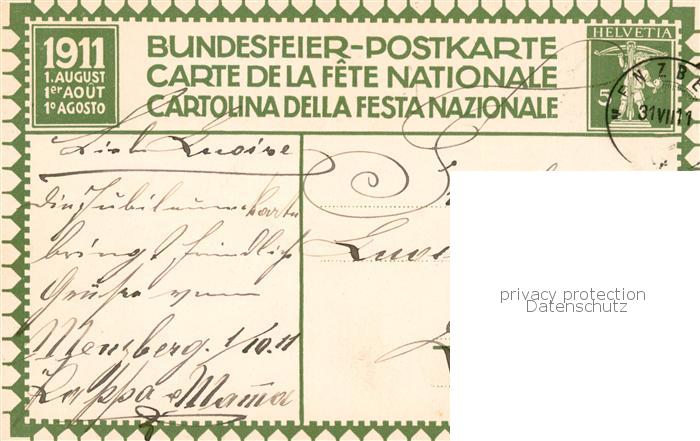 1911
1. AUGUST
1er AOÛT
1o AGOSTO
BUNDESFEIER-POSTKARTE
CARTE DE LA FÊTE NATIONALE
CARTOLINA DELLA FESTA NAZIONALE
HELVETIA
5
ENZBE
31 VII 11
Lieb
die Jubiläums Karte
bringt freundlich
Grüße vom
Menzberg. 1/
Pappa & Mama
privacy protection
Datenschutz